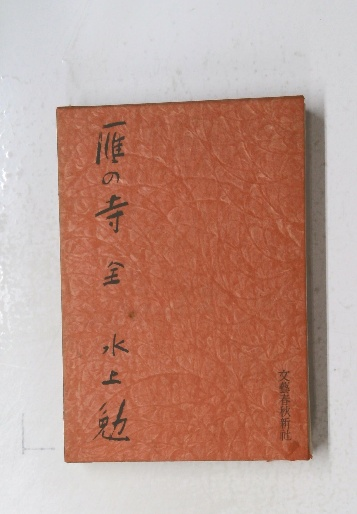 雁の寺 全 水上勉
文藝春秋新社